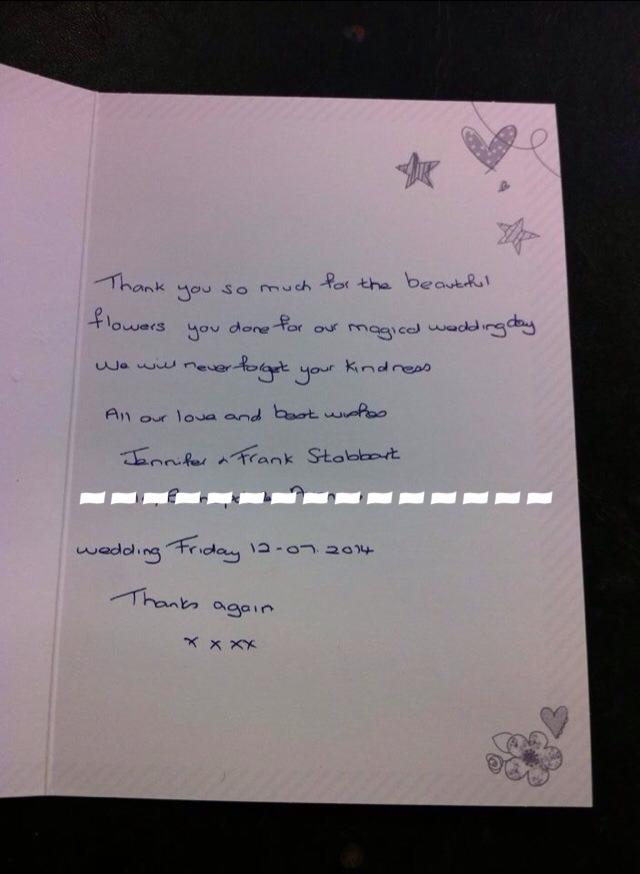 Thank you so much for the beautiful
flowers you done for our magical wedding day
We will never forget your kindness
All our love and best wishes
Jennifer & Frank Stobbart
wedding Friday 12-07.2014
Thanks again
x x xx